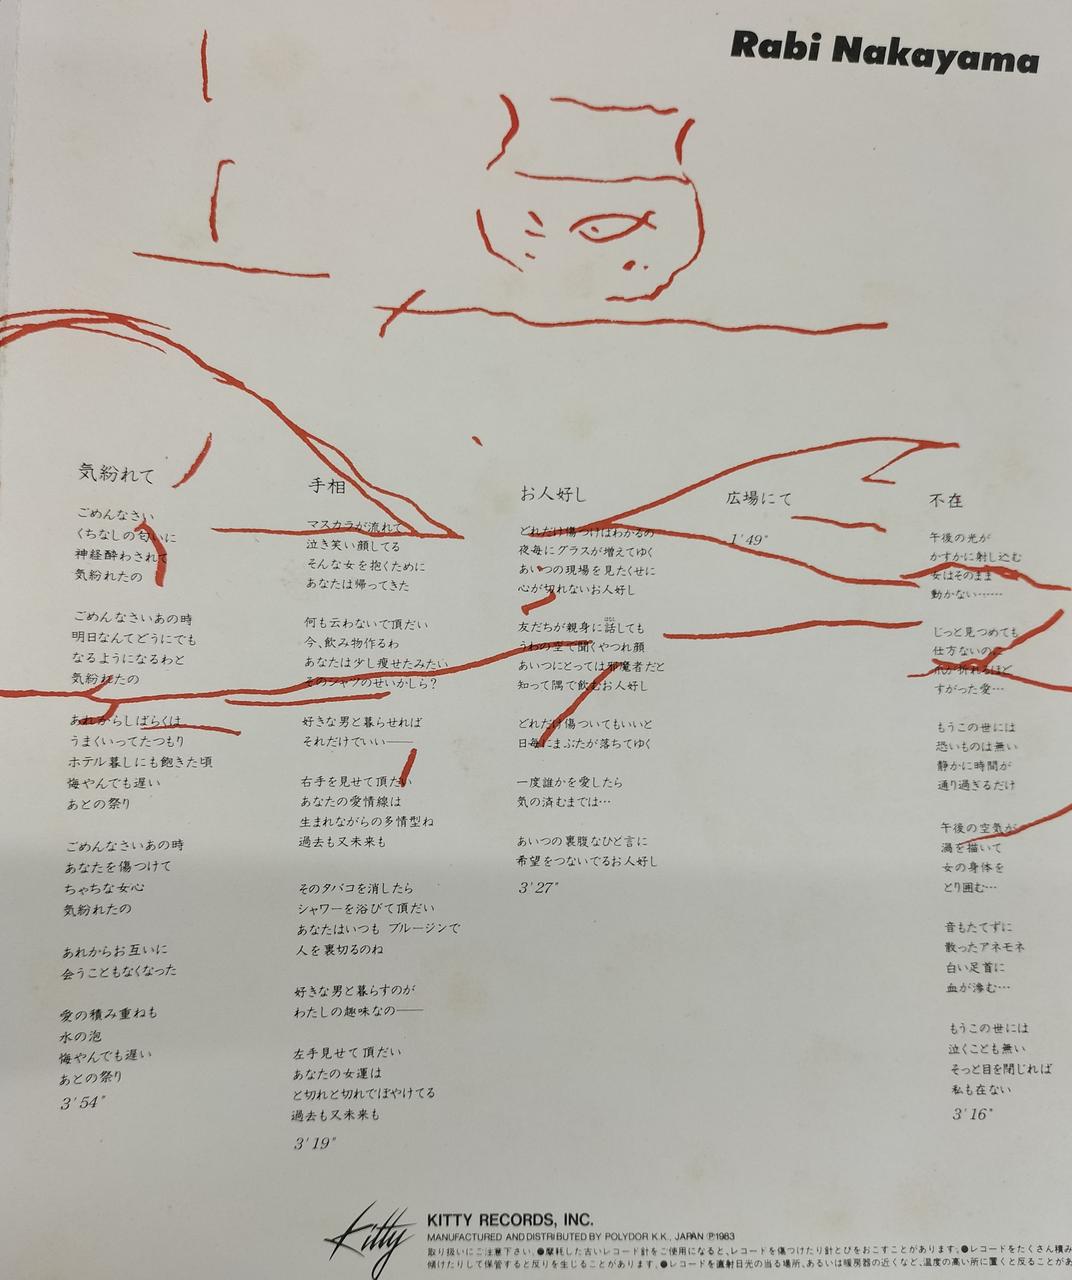 Rabi Nakayama
気紛れて
ごめんなさい
くちなしの匂いに
神経酔わされて
気紛れたの
ごめんなさいあの時
明日なんてどうにでも
なるようになるわと
気紛れたの
あれからしばらくは
うまくいってたつもり
ホテル暮しにも飽きた頃
悔やんでも遅い
あとの祭り
ごめんなさいあの時
あなたを傷つけて
ちゃちな女心
気紛れたの
あれからお互いに
会うこともなくなった
愛の積み重ねも
水の泡
悔やんでも遅い
あとの祭り
3'54"
手相
マスカラが流れて
泣き笑い顔してる
そんな女を抱くために
あなたは帰ってきた
何も云わないで頂だい
今、飲み物作るわ
あなたは少し痩せたみたい
そのシャツのせいかしら?
好きな男と暮らせれば
それだけでいい――
右手を見せて頂だい
あなたの愛情線は
生まれながらの多情型ね
過去も又未来も
そのタバコを消したら
シャワーを浴びて頂だい
あなたはいつも ブルージンで
人を裏切るのね
好きな男と暮らすのが
わたしの趣味なの――
左手見せて頂だい
あなたの女運は
と切れと切れでぼやけてる
過去も又未来も
3'19"
お人好し
どれだけ傷つけばわかるの
夜毎にグラスが増えてゆく
あいつの現場を見たくせに
心が切れないお人好し
友だちが親身に話しても
うわの空で聞くやつれ顔
あいつにとっては邪魔者だと
知って隅で飲むお人好し
どれだけ傷ついてもいいと
日毎にまぶたが落ちてゆく
一度誰かを愛したら
気の済むまでは…
あいつの裏腹なひと言に
希望をつないでるお人好し
3'27"
広場にて
1'49"
不在
午後の光が
かすかに射し込む
女はそのまま
動かない……
じっと見つめても
仕方ないのに
爪が折れるほど
すがった愛…
もうこの世には
恐いものは無い
静かに時間が
通り過ぎるだけ
午後の空気が
渦を描いて
女の身体を
とり囲む…
音もたてずに
散ったアネモネ
白い足首に
血が滲む…
もうこの世には
泣くことも無い
そっと目を閉じれば
私も在ない
3'16"
Kitty
KITTY RECORDS, INC.
MANUFACTURED AND DISTRIBUTED BY POLYDOR K.K., JAPAN Ⓟ1983
取り扱いにご注意下さい。●摩耗した古いレコード針をご使用になると、レコードを傷つけたり針とびをおこすことがあります。●レコードをたくさん積み
傾けたりして保管すると反りを生じることがあります。●レコードを直射日光の当る場所、あるいは暖房器の近くなど、温度の高い所に置くと反ることがあ